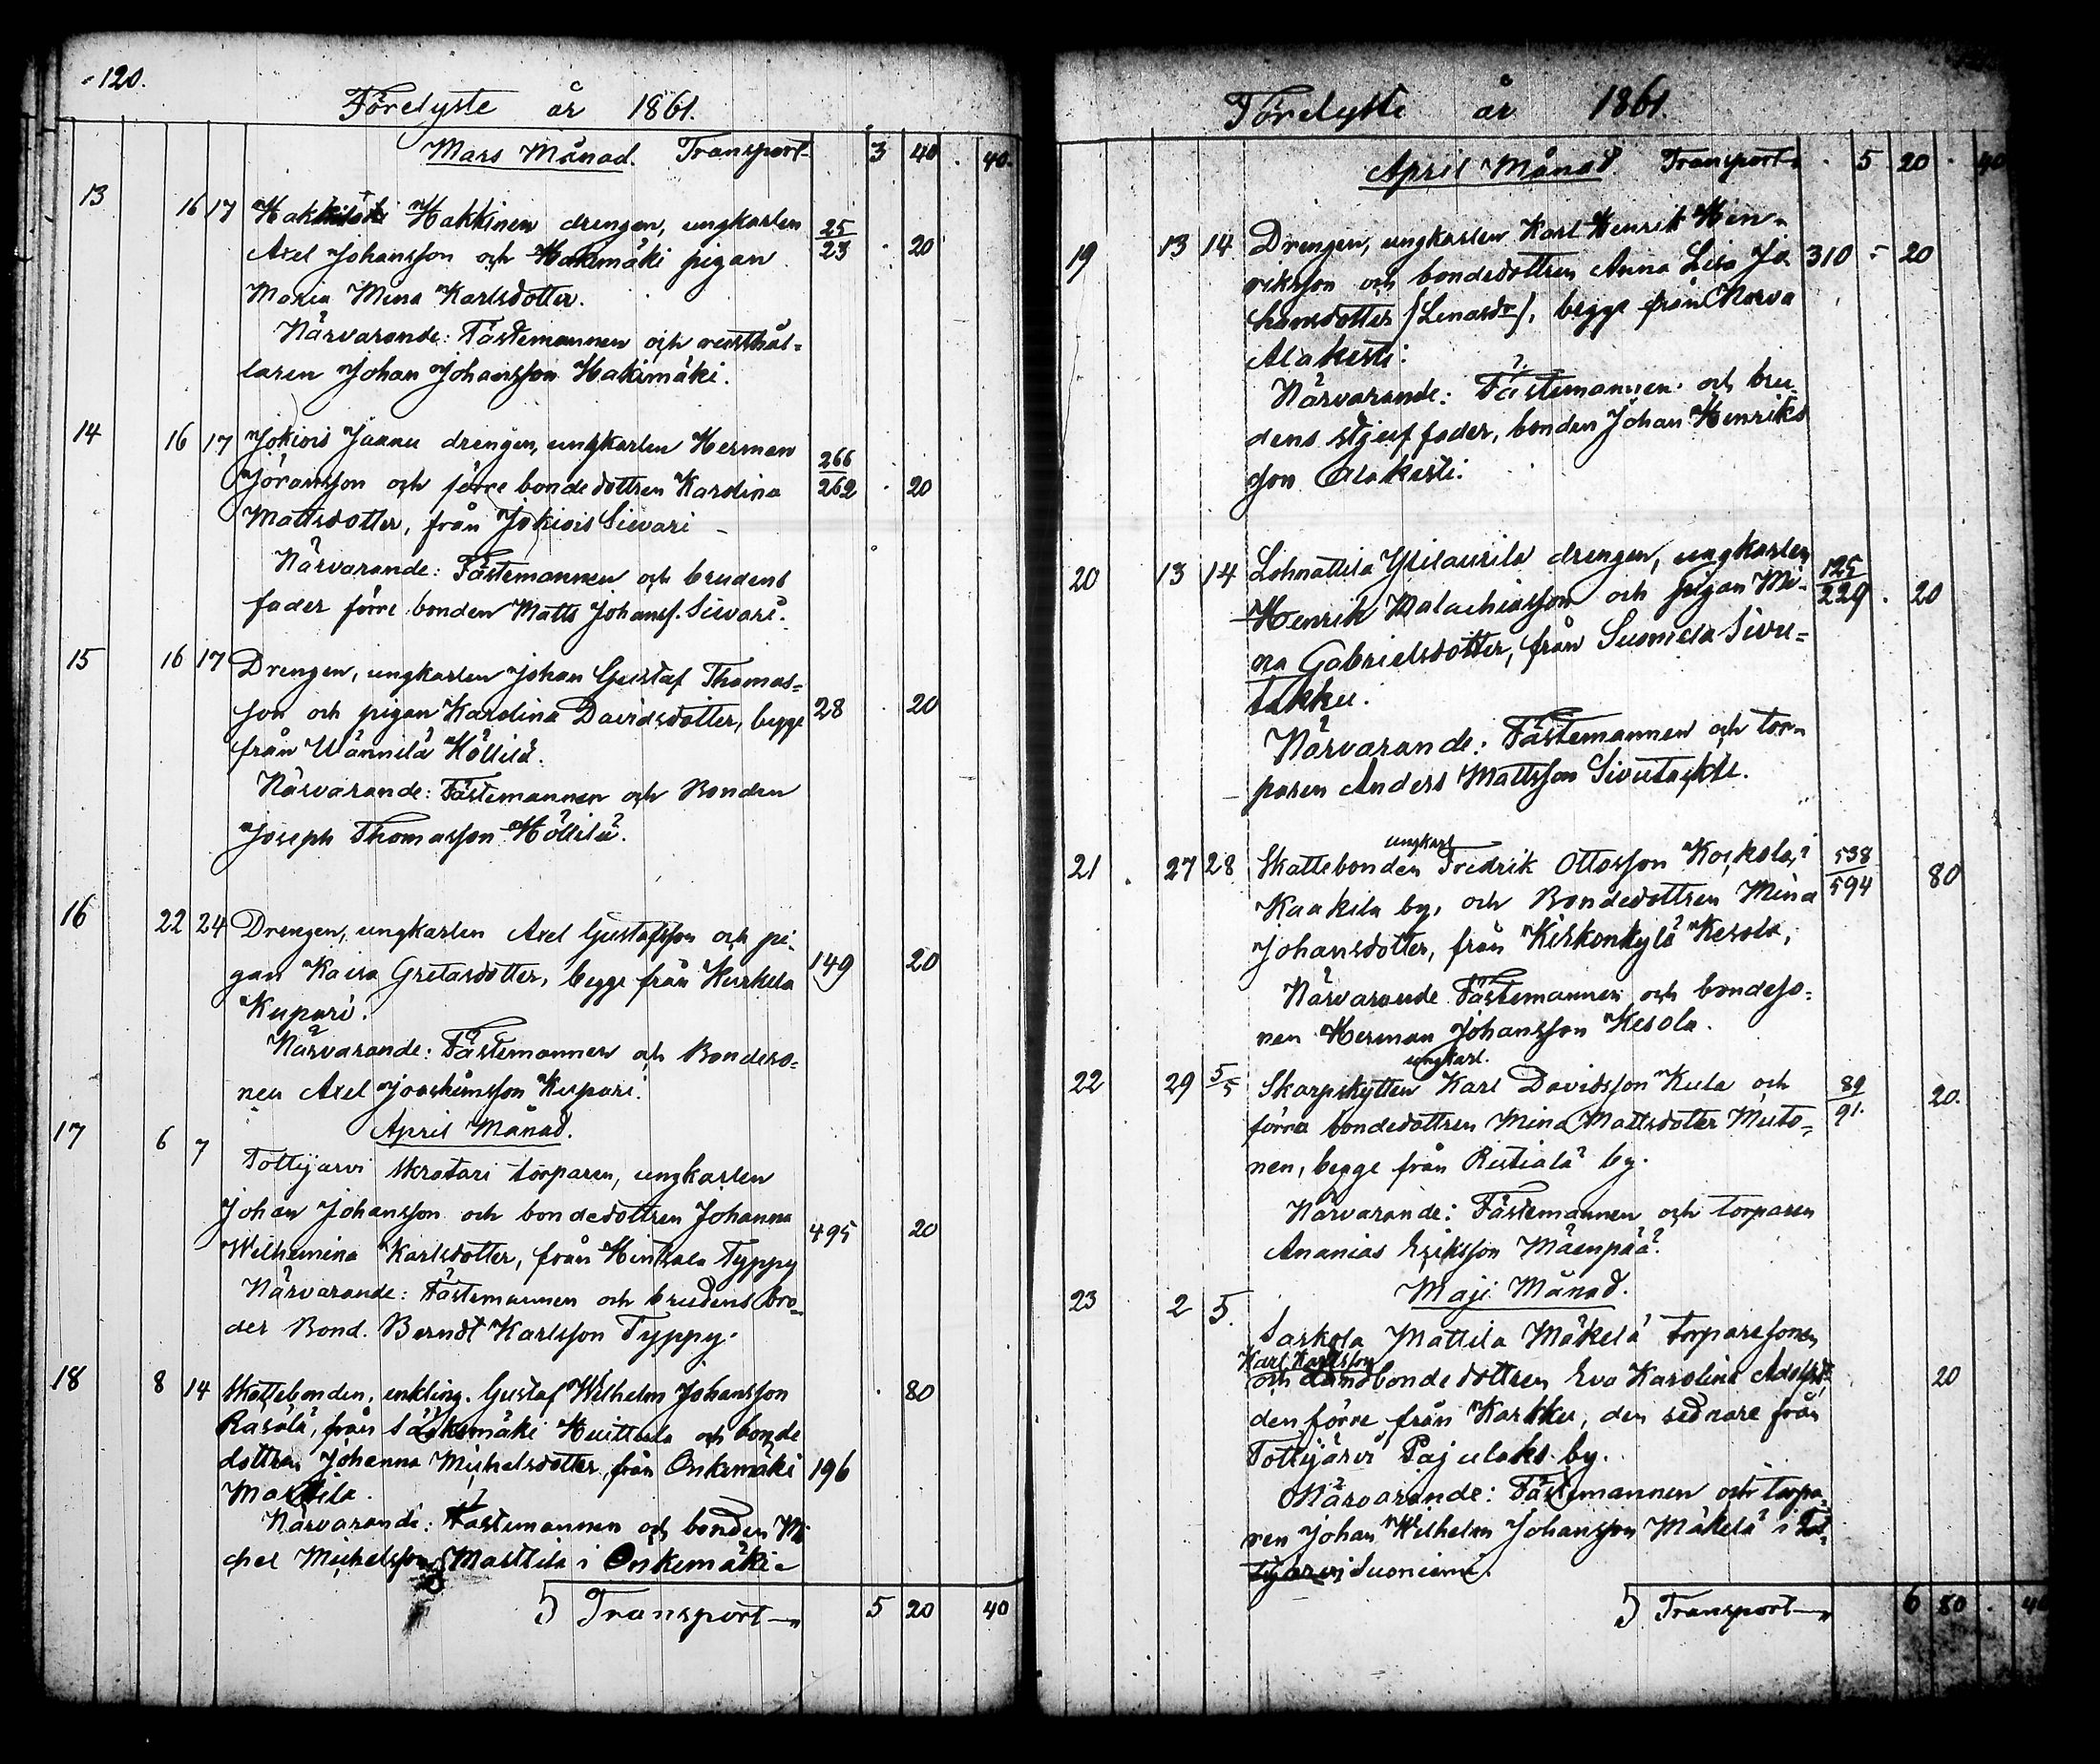 120.
Förelyste år 1861.
Mars Månad. Transport 3 40 . 40.
13 16 17 Hakkinen drengen, ungkarlen 25/23 . 20
Axel Johansson och Hakimäki pigan
Maria Mina Karlsdotter.
Närvarande: Fästemannen och rusthål-
laren Johan Johansson Hakimäki.
14 16 17 Jokiois Jaanu drengen, ungkarlen Herman 266/262 . 20
Göransson och förre bondedottren Karolina
Mattsdotter, från Jokiois Sievari
Närvarande: Fästemannen och brudens
fader förre bonden Matts Johanss. Sievari.
15 16 17 Drengen, ungkarlen Johan Gustaf Thomas-
son och pigan Karolina Davidsdotter, begge 28 . 20
från Wännilä Höllilä.
Närvarande: Fästemannen och Bonden
Joseph Thomasson Höllilä.
16 22 24 Drengen, ungkarlen Axel Gustafsson och pi-
gan Kaisa Gretasdotter, begge från Kurkela 149 20
Kupari.
Närvarande: Fästemannen och Bondeso-
nen Axel Joachimsson Kupari.
April Månad.
17 6 7 Tottijarvi Skratari torparen, ungkarlen
Johan Johansson och bondedottren Johanna 495 20
Wilhemina Karlsdotter, från Hinsala Typpy
Närvarande: Fästemannen och brudens bro-
der Bond. Berndt Karlsson Typpy.
18 8 14 Skattebonden, enkling. Gustaf Wilhelm Johansson . 80
Rasälä, från Sääksmäki Huittula och bonde
dottren Johanna Michelsdotter från Onkemäki 196
Marttila.
Närvarande: Fästemannen och bonden Mi
chel Michelsson Marttila i Onkemäki
5 Transport 5 20 40
Förelyste år 1861.
April Månad. Transport . 5 20 . 40
19 13 14 Drengen, ungkarlen Karl Henrik Hen-
riksson och bondedottren Anna Lisa Jo- 310 - 20
hansdotter (Lenasdr), begge från Narva
Alakesti.
Närvarande: Fästemannen och bru
dens stjuffader, bonden Johan Henriks
son Alakesti.
20 13 14 Lohnattila Ylilaurila drengen, ungkarlen 125/229 . 20
Henrik Malachiasson och pigan Mi-
na Gabrielsdotter, från Suoniela Sivu-
takku.
Närvarande: Fästemannen och tor-
paren Anders Mattsson Sivutakku.
ungkarl
21 27 28 Skattebonden Fredrik Ottosson Koskela, i 538/594 80
Kaakila by, och Bondedottren Mina
Johansdotter, från Kirkonkylä Kesola,
Närvarande Fästemannen och bondeso-
nen Herman Johansson Kesola.
ungkarl.
22 29 5/5 Skarpskytten Karl Davidsson Kula och 89/91. 20.
förra bondedottren Mina Mattsdotter Muto-
nen, begge från Rutiala by.
Närvarande: Fästemannen och torparen
Ananias Eriksson Mäenpää.
Maji Månad.
23 2 5. Sarkola Mattila Mäkelä torparesonen
Karl Karlsson
och landbondedottren Eva Karolina Adolfsdr 20
den förre från Karkku, den sednare från
Tottijärvi Pajulaks by.
Närvarande: Fästemannen och torpa-
ren Johan Wilhelm Johansson Mäkelä i Tot-
tijärvi Suoniemi.
5 Transport 6 80 . 40